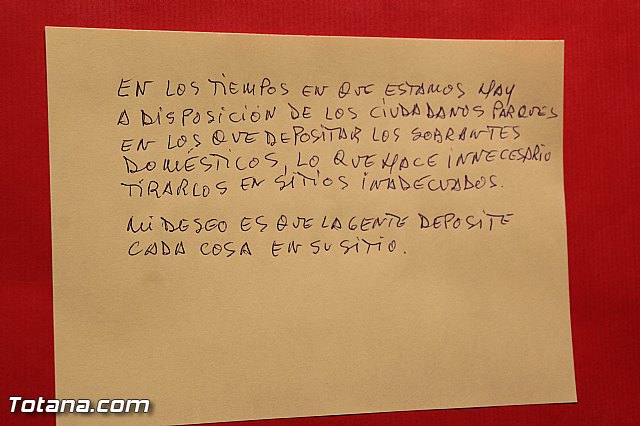 EN LOS TIEMPOS EN QUE ESTAMOS HAY
A DISPOSICIÓN DE LOS CIUDADANOS PARQUES
EN LOS QUE DEPOSITAR LOS SOBRANTES
DOMÉSTICOS, LO QUE HACE INNECESARIO
TIRARLOS EN SITIOS INADECUADOS.
MI DESEO ES QUE LA GENTE DEPOSITE
CADA COSA EN SU SITIO.
Totana.com